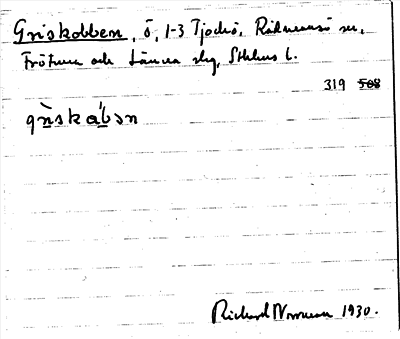 Griskobben, ö, 1-3 Tjockö, Rådmansö sn,
Frötuna och Länna slg, Sthlms l.
319 508
Richard Norman 1930.